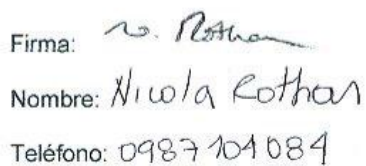 Firma: N. Rothan
Nombre: Nicola Rothan
Teléfono: 0987104084